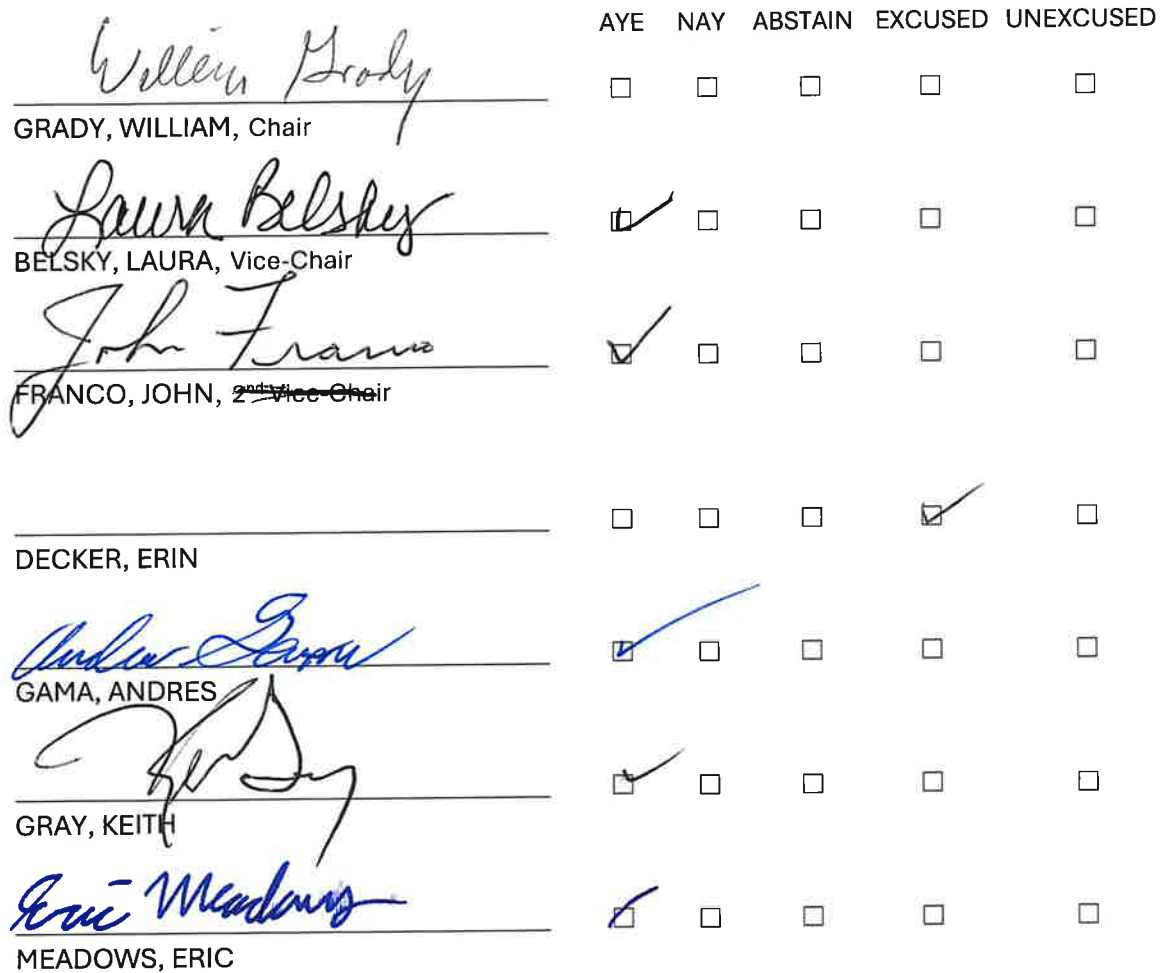 AYE NAY ABSTAIN EXCUSED UNEXCUSED
William Grady
GRADY, WILLIAM, Chair
Laura Belsky
BELSKY, LAURA, Vice-Chair
John Franco
FRANCO, JOHN, 2nd Vice-Chair
DECKER, ERIN
GAMA, ANDRES
GRAY, KEITH
Eric Meadows
MEADOWS, ERIC